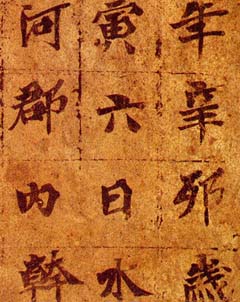 年辛卯歲
寅六日水
河郡内幹